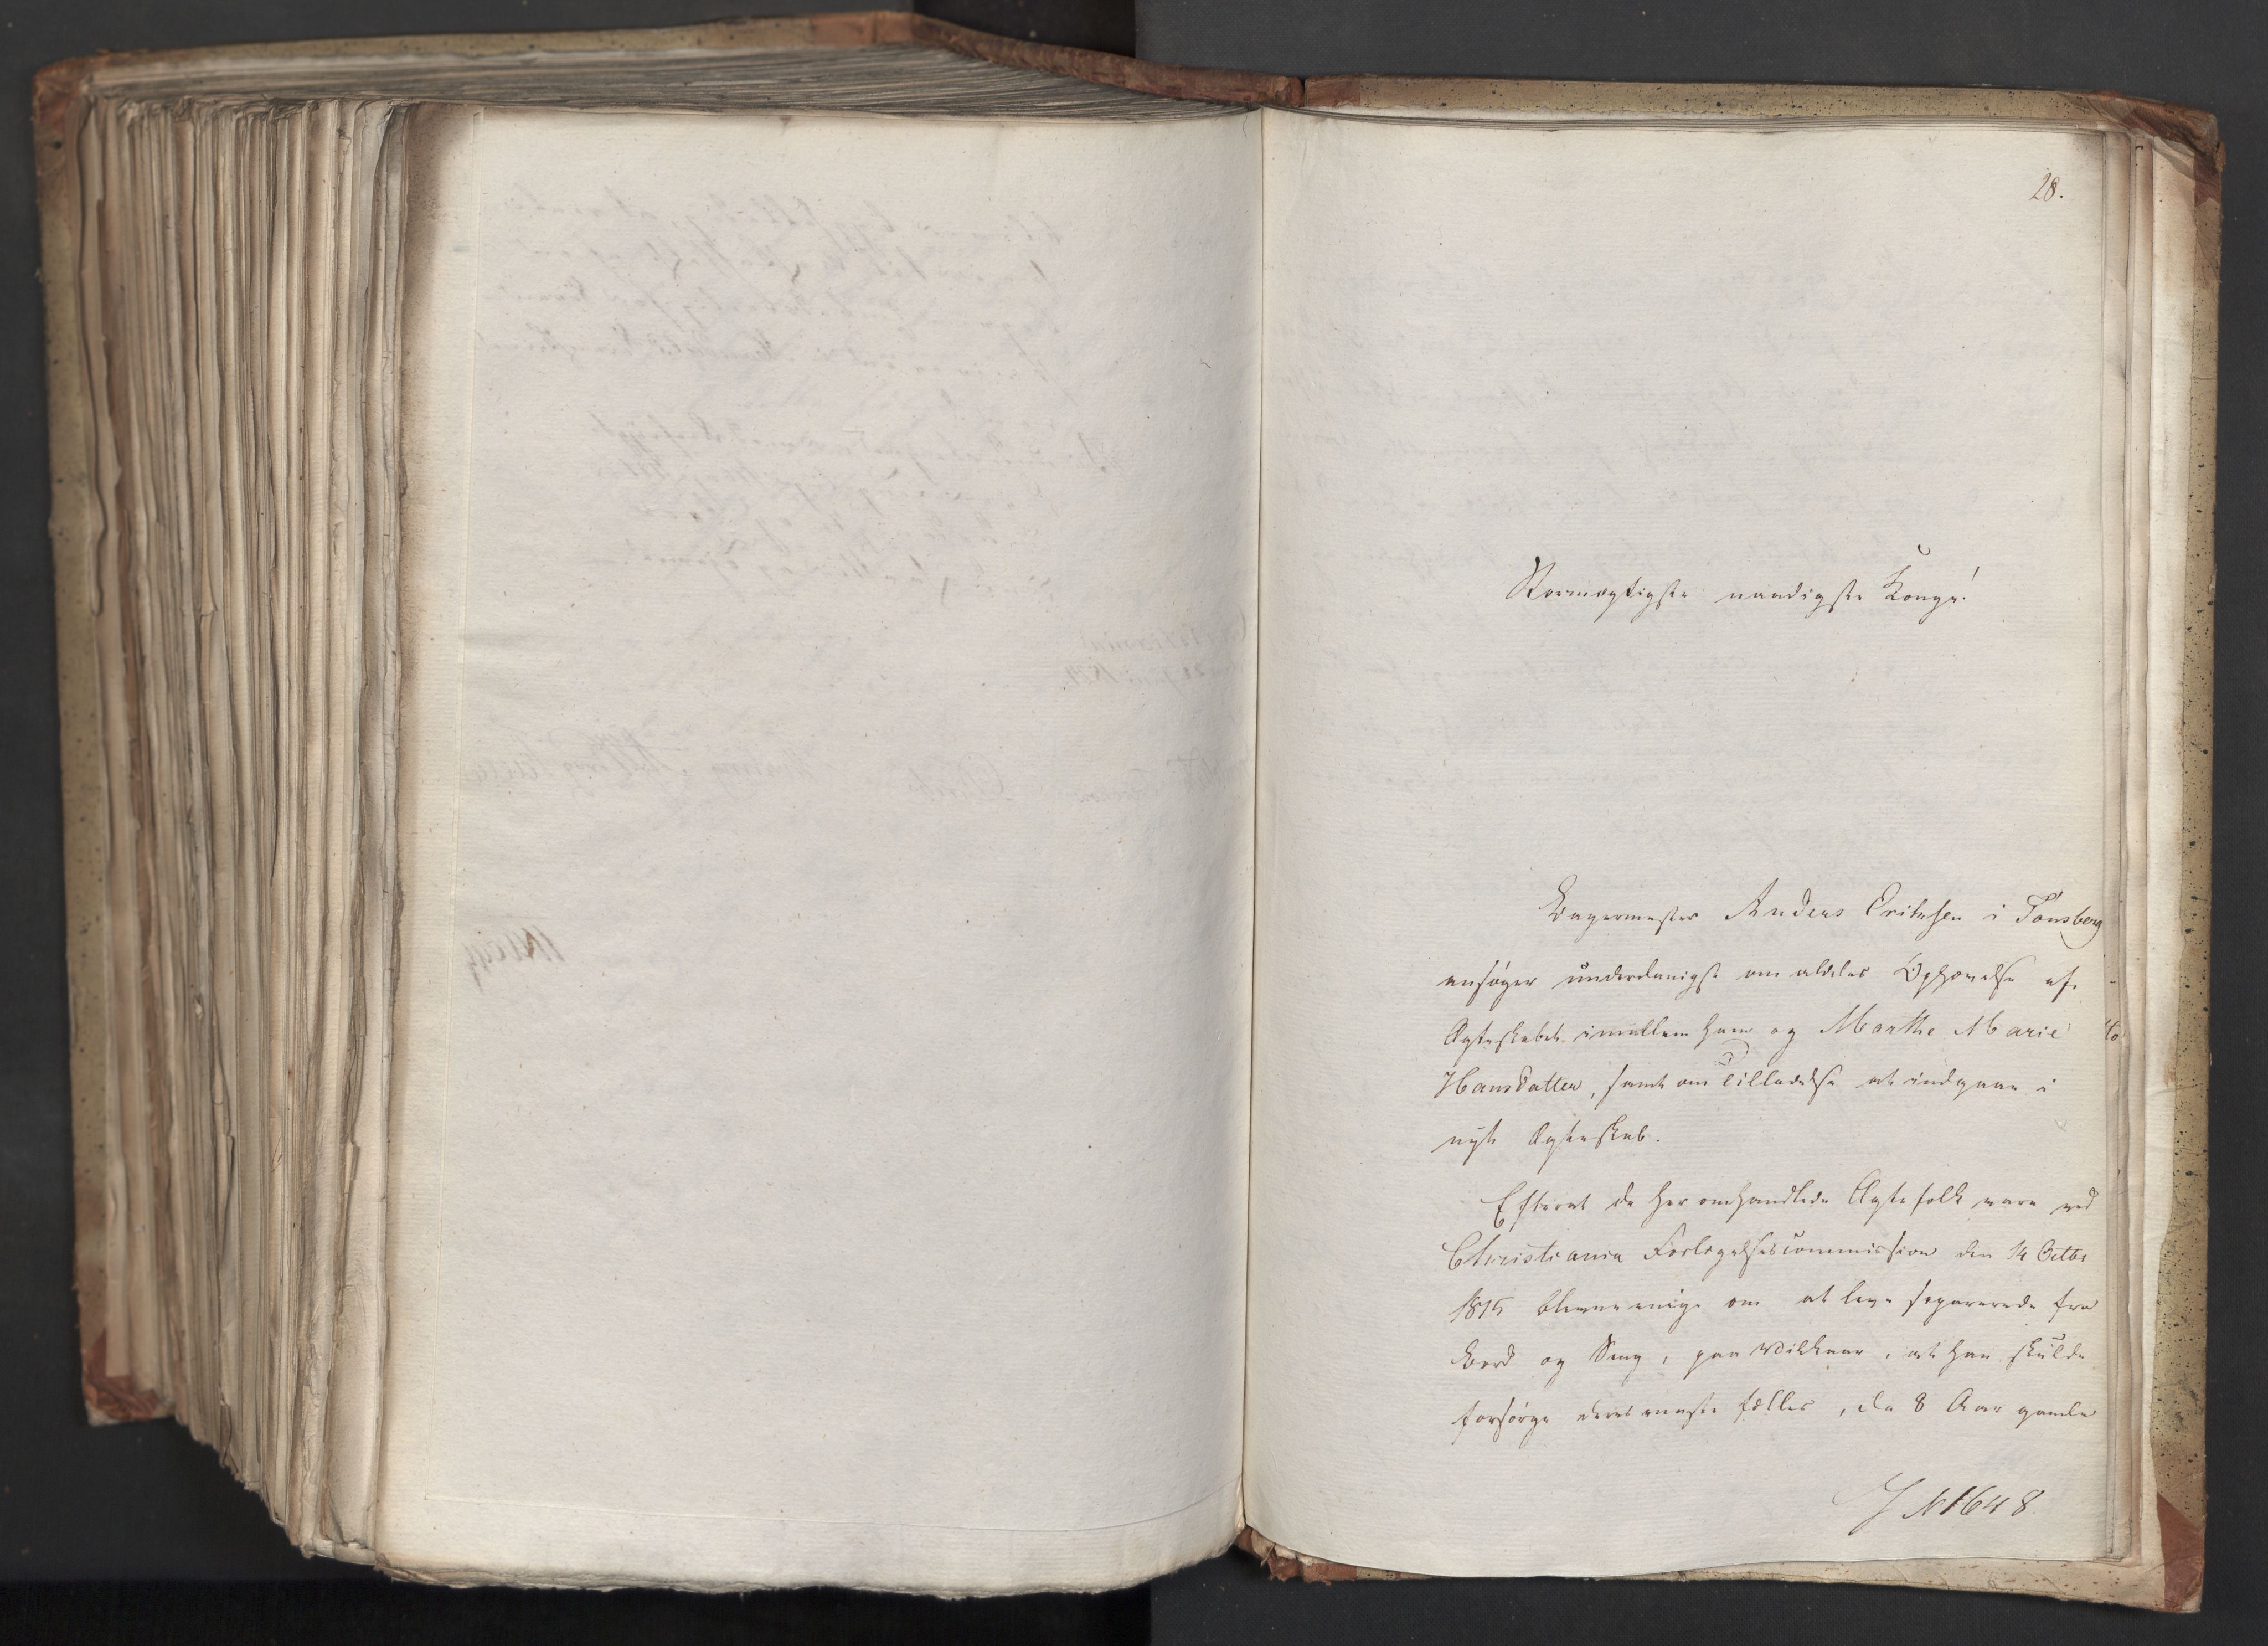 28.
Stormægtigste naadigste Konge!
Bagermester Anders Erichsen i Tønsberg
ansøger underdanigst om aldeles Ophævelse af
Ægteskabet imellem ham og Marthe Marie
Hansdatter, samt om Tilladelse at indgaae i
nyt Ægteskab.
Efterat de her omhandlede Ægtefolk vare ved
Christiania Forligelsescommission den 14 Octbr
1815 blevne enige om at leve separerede fra
Bord og Seng, paa Vilkaar, at han skulde
forsørge deres eneste fælles, da 8 Aar gamle
J N 1648